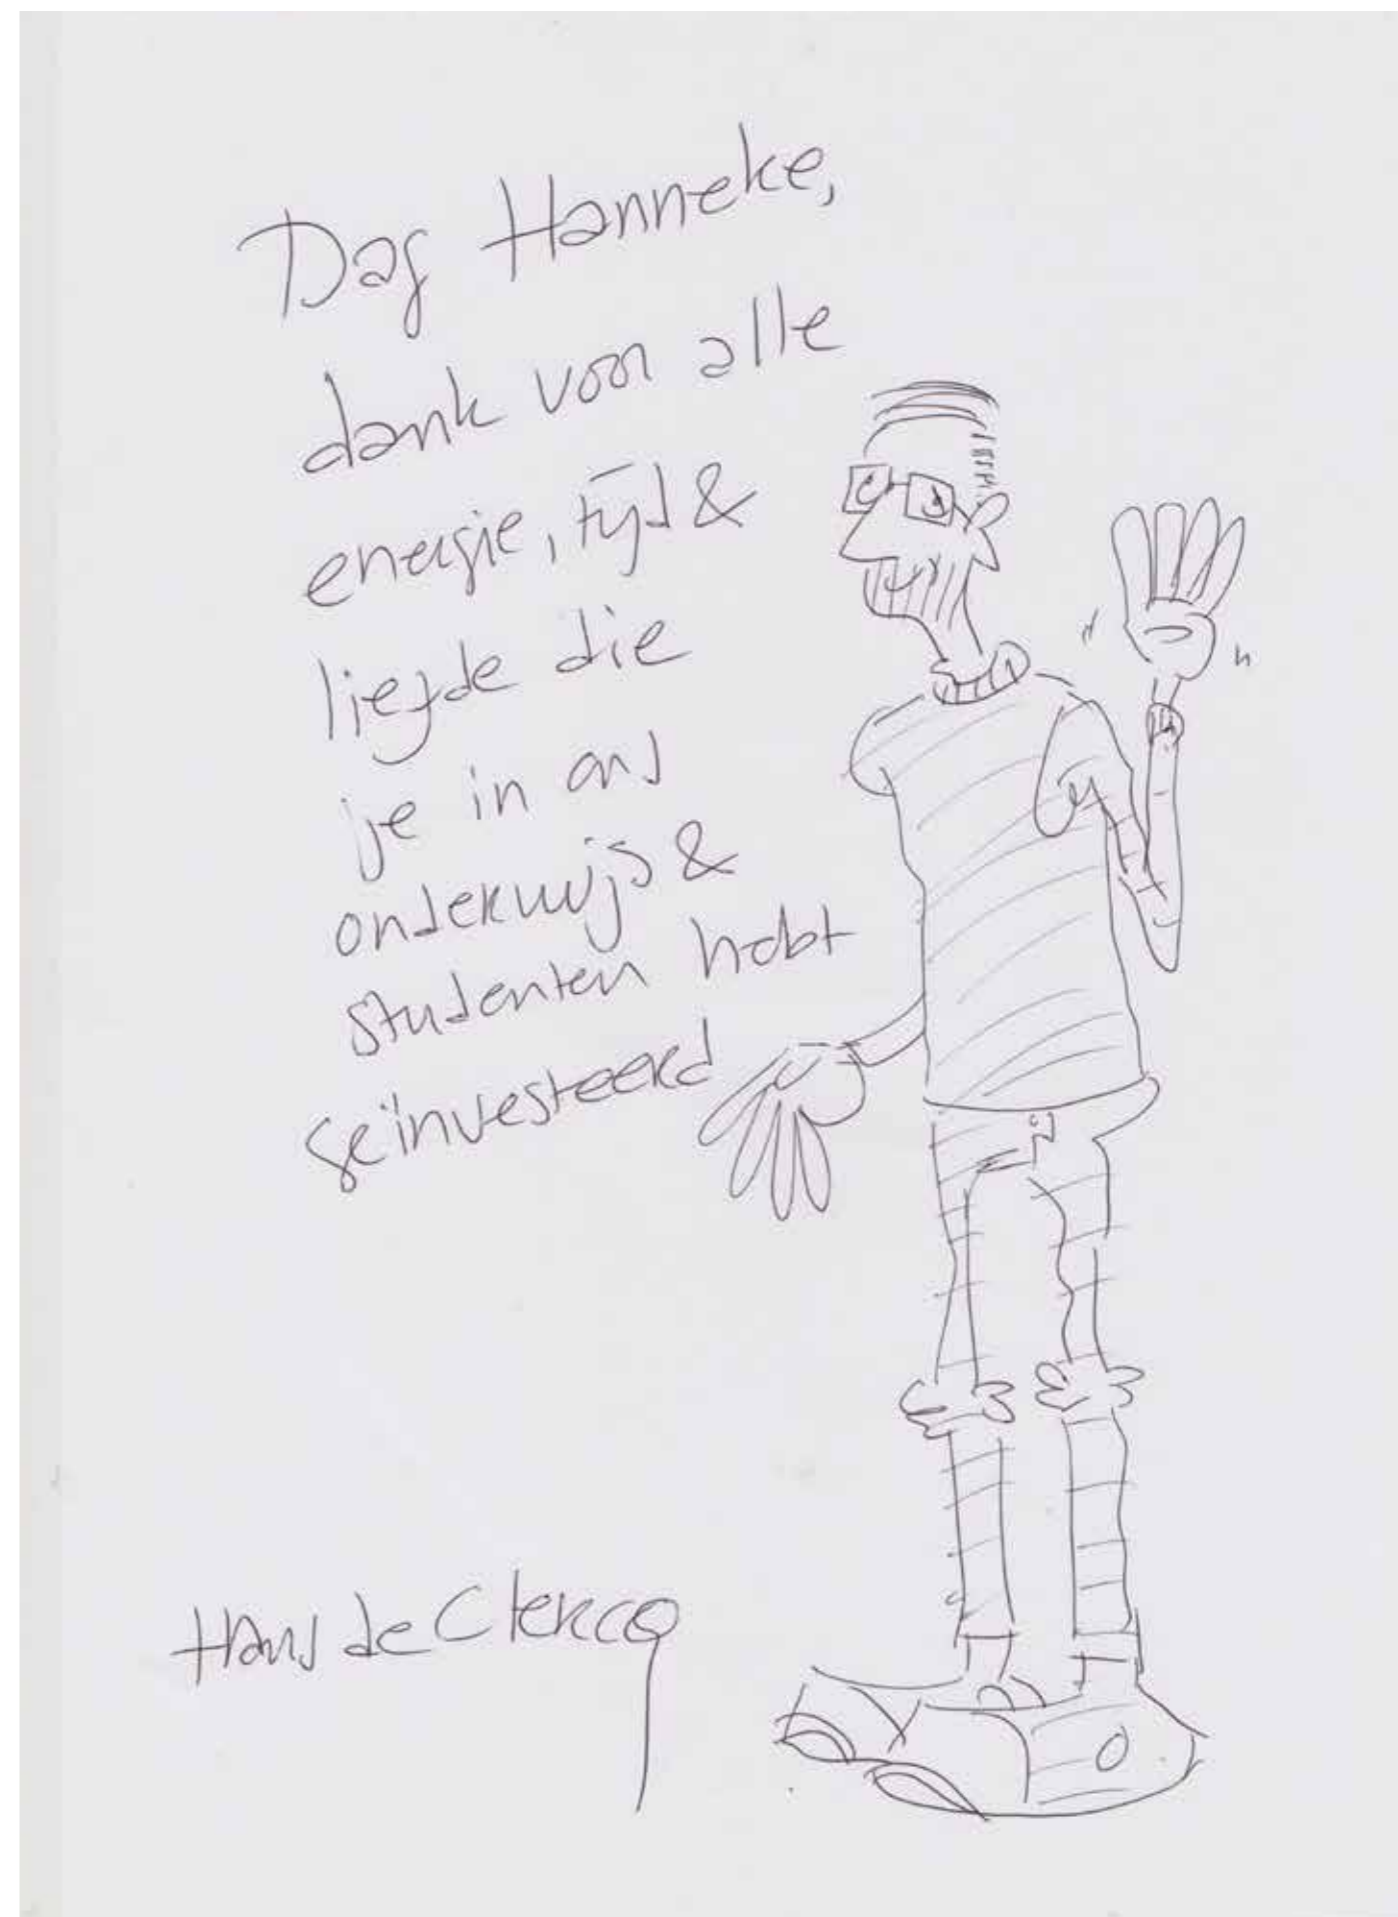 Dag Hanneke,
dank voor alle
energie, tijd &
liefde die
je in ons
onderwijs &
studenten hebt
geïnvesteerd
Hans de Clercq